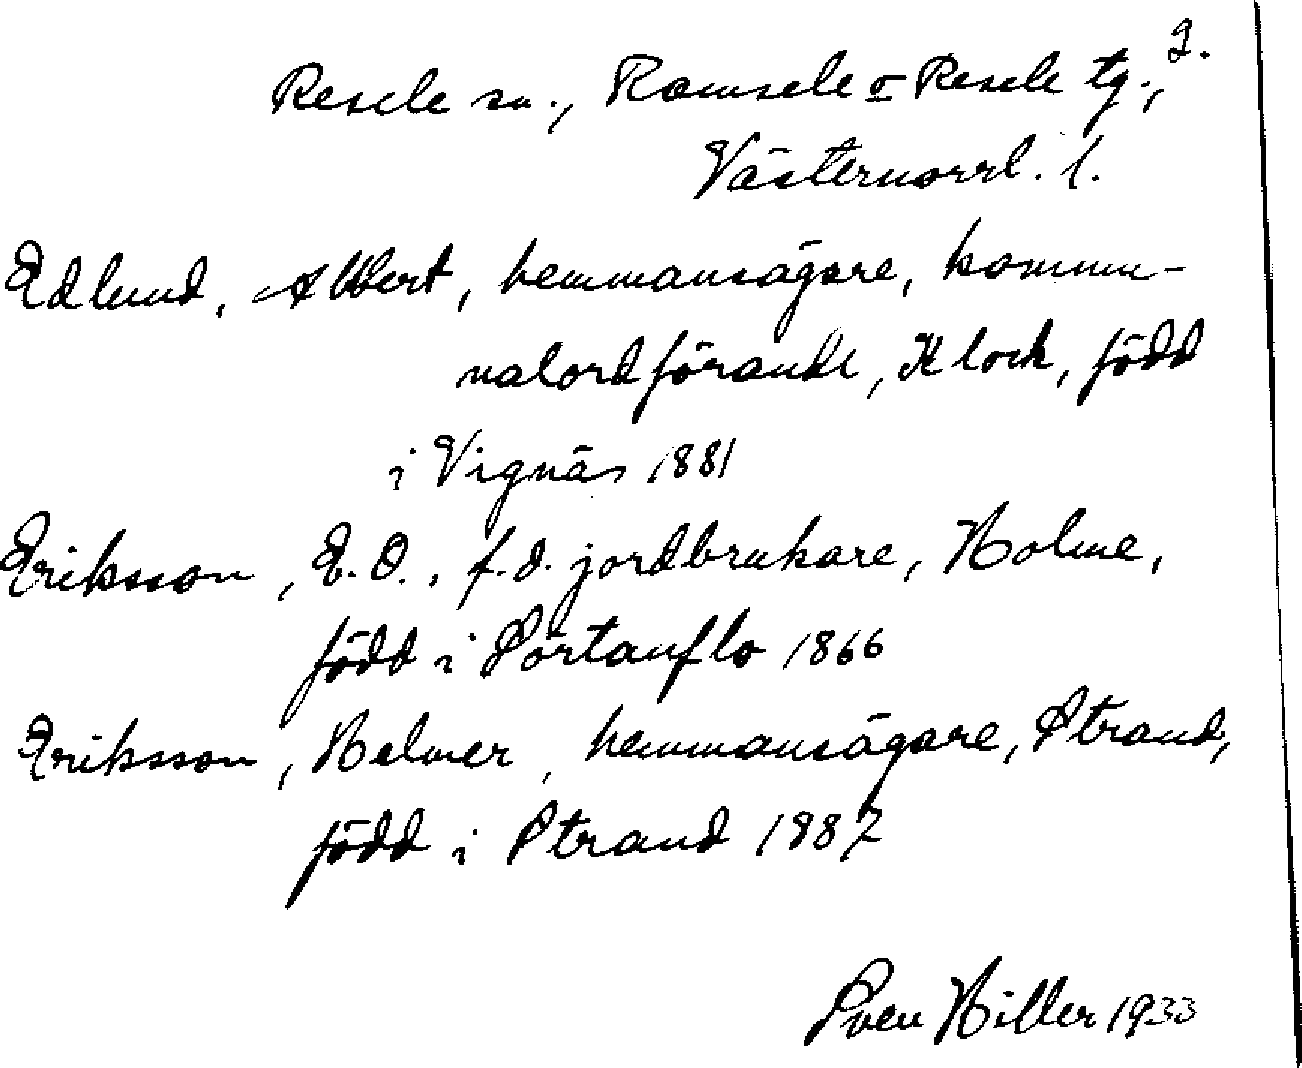 2.
Resele sn., Ramsele o Resele tg.,
Västernorrl. l.
Edlund, Albert, hemmansägare, kommu-
nalordförande, Klock, född
i Vignäs 1881
Eriksson, E. O., f.d. jordbrukare, Holme,
född i Sörtanflo 1866
Eriksson, Helmer, hemmansägare, Strand,
född i Strand 1887
Sven Hiller 1933